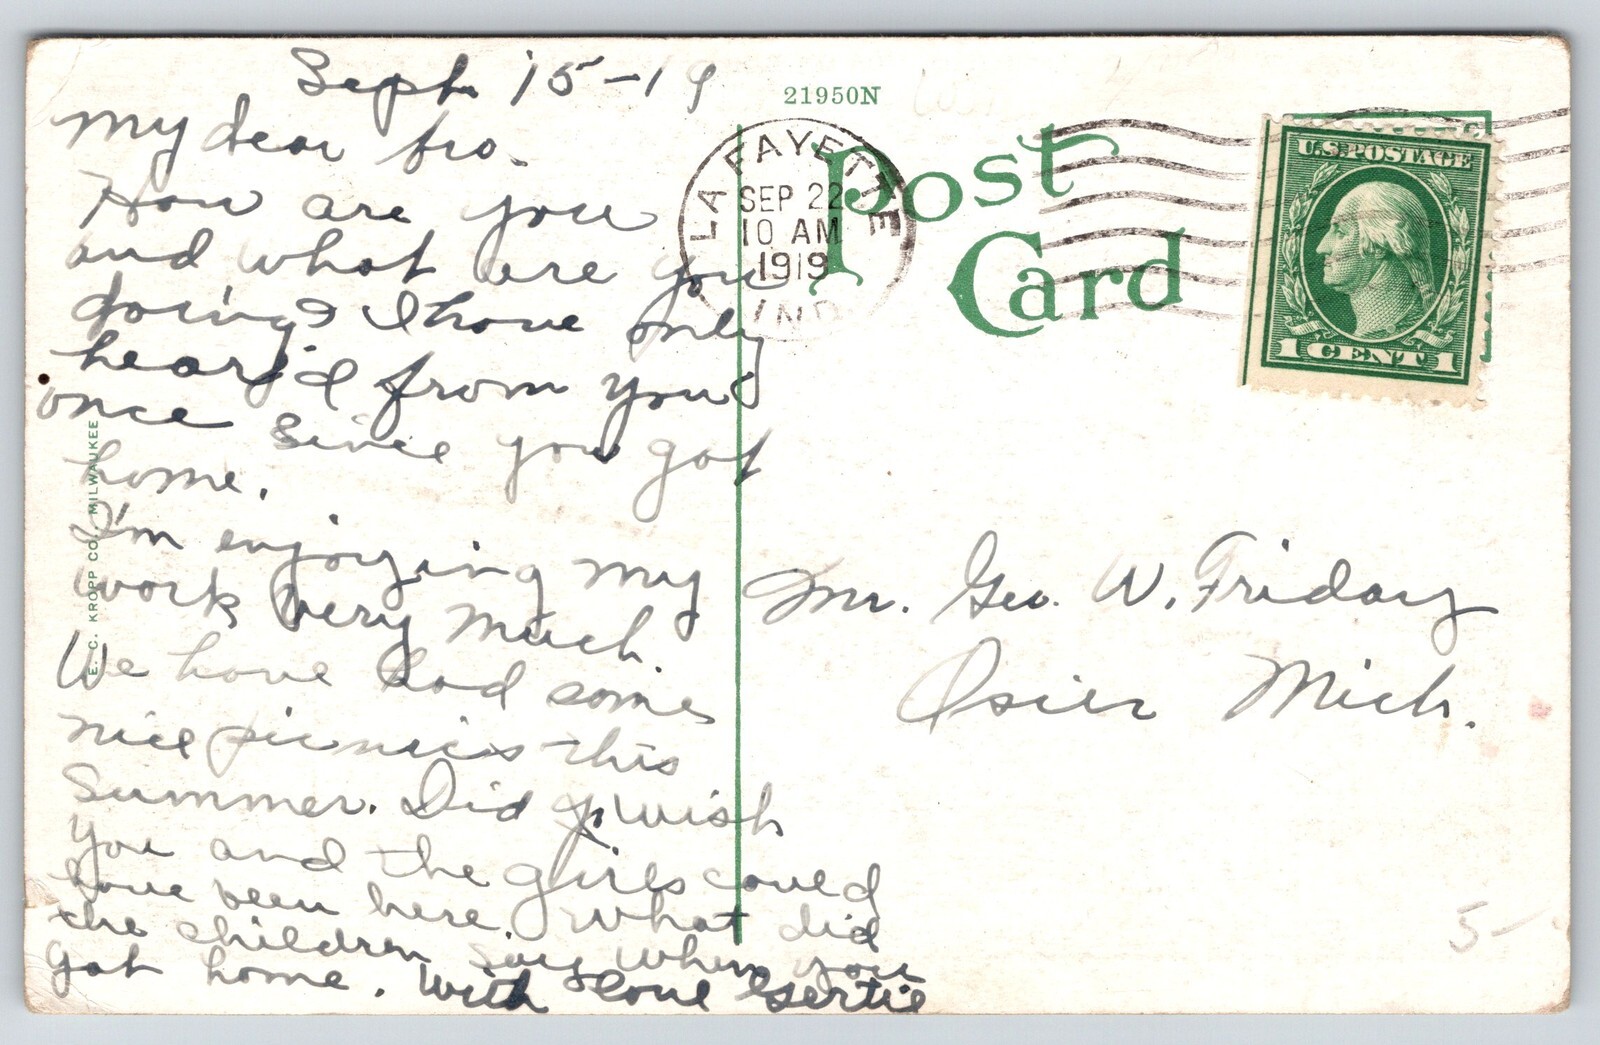 Sept. 15-19
My dear bro-
How are you
and what are you
doing? I have only
heard from you
once since you got
home.
I'm enjoying my
work very much.
We have had some
nice picnics this
Summer. Did wish
you and the girls could
have been here. What did
the children say when you
got home. With love Gertie
21950N
Post
Card
LA FAYETTE
SEP 22
10 AM
1919
IND
U.S. POSTAGE
1 CENT 1
Mr. Geo. W. Friday
Osier Mich.
5-
E. C. KROPP CO. MILWAUKEE